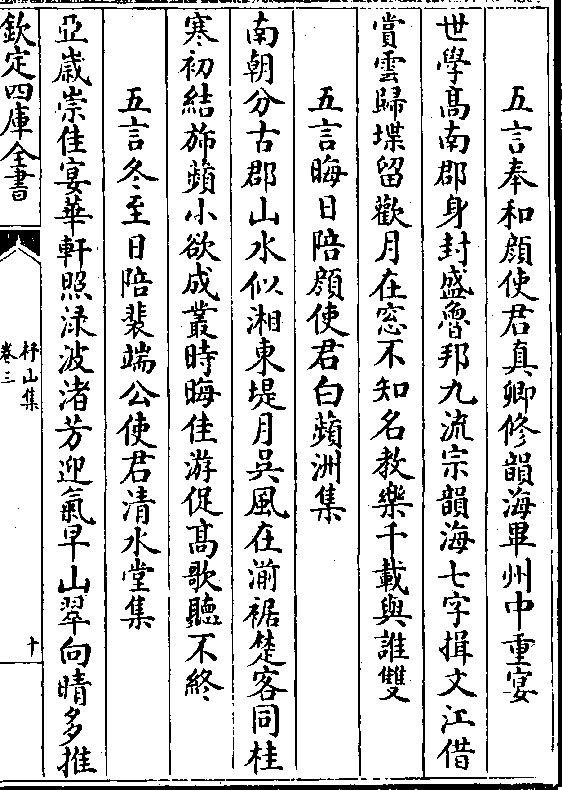 五言奉和顔使君真卿修韻海畢州中重宴
世學髙南郡身封盛魯邦九流宗韻海七字揖文江借
賞雲歸堞留歡月在窓不知名教樂千載與誰雙
五言晦日陪顔使君白蘋洲集
南朝分古郡山水似湘東堤月吳風在湔裾楚客同桂
寒初結斾蘋小欲成叢時晦佳游促髙歌聽不終
五言冬至日陪裴端公使君清水堂集
亞嵗崇佳宴華軒照渌波渚芳迎氣早山翠向晴多推
欽定四庫全書
杼山集
卷三
十